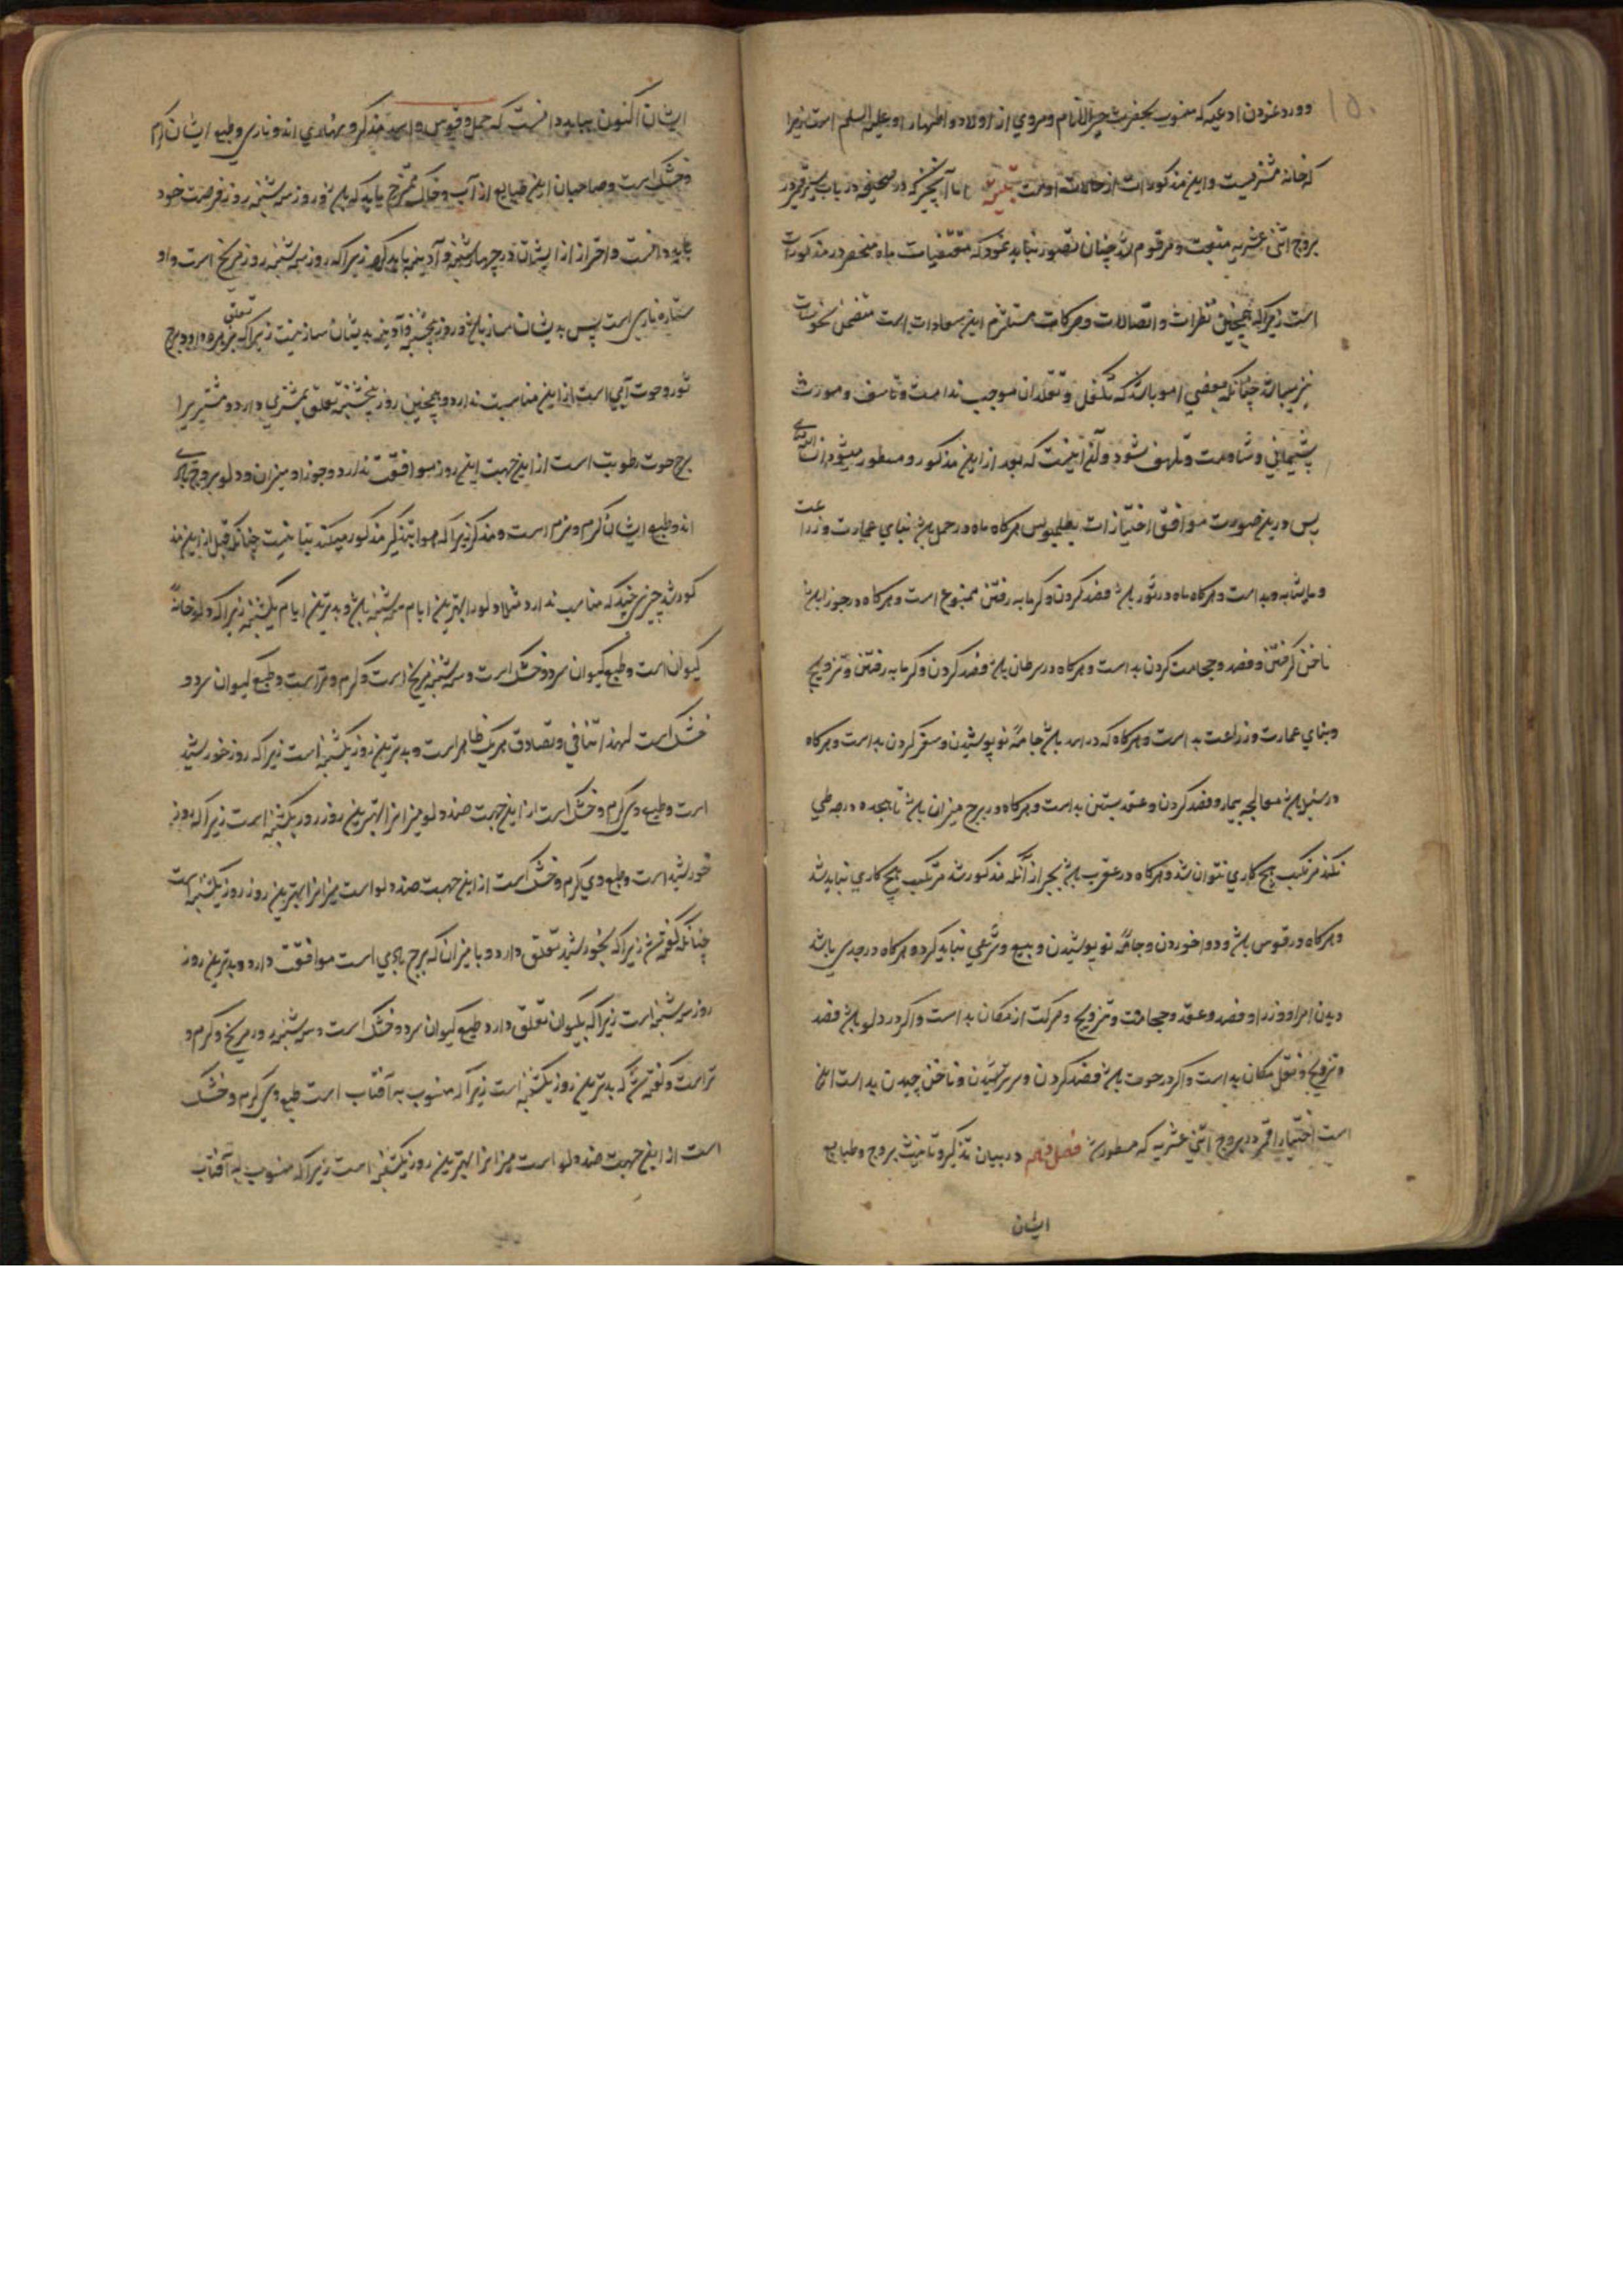 ۱۵۰
و ورد نمودن ادعیه که منسوب بحضرت خیر الانام و مروی از اولاد و اطهار او علیه السلم است زیرا
که خانه مشتریست و این مذکورات از حالات اوست اما آنچیز که در صحیفه در باب سیر قمر در
بروج اثنی عشریه مثبت و مرقوم شد چنان تصور نباید نمود که مقتضیات ماه منحصر در مذکورات
است زیرا که همچنین نظرات و اتصالات و حرکات مستلزم این سعادات است متضمن نحوسات
نیز میباشد چنانکه بعضی امور باشد که تکفل و تقلد ان موجب ندامت و تاسف و مورث
پشیمانی و تلهف شود و آن اینست که بعد از این مذکور و مسطور میشود انشاالله
پس درین صورت موافق اختیارات بطلمیوس هرگاه ماه در حمل باشد بنای عمارت و زراعت
و ماشابه بد است و هرگاه ماه در ثور باشد فصد کردن و گرمابه رفتن ممنوع است و هرگاه در جوزا باشد
ناخن گرفتن و فصد و حجامت کردن بد است و هرگاه در سرطان باشد فصد کردن و گرمابه رفتن و تزویج
و بنای عمارت و زراعت بد است و هرگاه که در اسد باشد جامهٔ نو پوشیدن و سفر کردن بد است و هرگاه
در سنبله باشد معالجه بیمار و فصد کردن و عقد بستن بد است و هرگاه در برج میزان باشد تا هجده درجه طی
نکند مرتکب هیچ کاری نتوان شد و هرگاه در عقرب باشد بجز از آنکه مذکور شد مرتکب هیچ کاری نباید شد
و هرگاه در قوس باشد و دوا خوردن و جامهٔ نو پوشیدن و بیع و شری نباید کرد و هرگاه در جدی باشد
دیدن امرا و وزرا و فصد و عقد و حجامت و تزویج و حرکت از مکان بد است و اگر در دلو باشد فصد
و تزویج و نقل مکان بد است و اگر در حوت باشد فصد کردن و سر تراشیدن و ناخن چیدن بد است این
است اختیارات قمر در بروج اثنی عشریه که مسطور شد فصل در بیان تذکیر و تانیث بروج و طبایع
ایشان
ایشان اکنون بباید دانست که حمل و قوس و اسد مذکر و نهاری اند و ناری و طبع ایشان گرم
و خشک است و صاحبان این طبایع از آب و خاک ممتزج باید که باشد و روز سه شنبه روز فرصت خود
باید دانست و احتراز از ایشان در چهارشنبه و آدینه باید کرد زیرا که روز سه شنبه روز مریخ است و او
ستاره ناری است پس بدیشان ساز باشد و روز پنجشنبه و آدینه بدیشان ساز نیست زیرا که بزهره تعلق دارد و برج
ثور و حوت آبی است از این مناسبت ندارد و همچنین روز پنجشنبه تعلق بمشتری دارد و مشتریرا
برج حوت رطوبت است از این جهت این روز موافقت ندارد و جوزا و میزان و دلو بروج بادی
اند و طبع ایشان گرم و نرم است و مذکر زیرا که هوا بتذکیر مذکور میکند بتانیث چنانکه قبل از این مذ
کور شد چیزی چند که مناسب ندارد مثلا دلو را بهترین ایام سه شنبه باشد و بدترین ایام یکشنبه زیرا که دلو خانهٔ
کیوان است و طبع کیوان سرد و خشک است و سه شنبه مریخ است و گرم و تر است و طبع کیوان سرد و
خشک است لهذا تنافی و تصادق هر یک ظاهر است و بدترین روز یکشنبه است زیرا که روز خورشید
است و طبع وی گرم و خشک است از این جهت ضد دلو میزانرا بهترین روز روز یکشنبه است زیرا که روز
خورشید است و طبع وی گرم و خشک است از این جهت ضد دلو است میزانرا بهترین روز روز یکشنبه است
چنانکه گفته شد زیرا که بخورشید تعلق دارد و با میزان که برج بادی است موافقت دارد و بدترین روز
روز سه شنبه است زیرا که بکیوان تعلق دارد طبع کیوان سرد و خشک است و سه شنبه مریخ و گرم و
تر است و گفته شد که بدترین روز یکشنبه است زیرا که منسوب به آفتاب است طبع وی گرم و خشک
است از این جهت ضد دلو است میزانرا بهترین روز یکشنبه است زیرا که منسوب به آفتاب